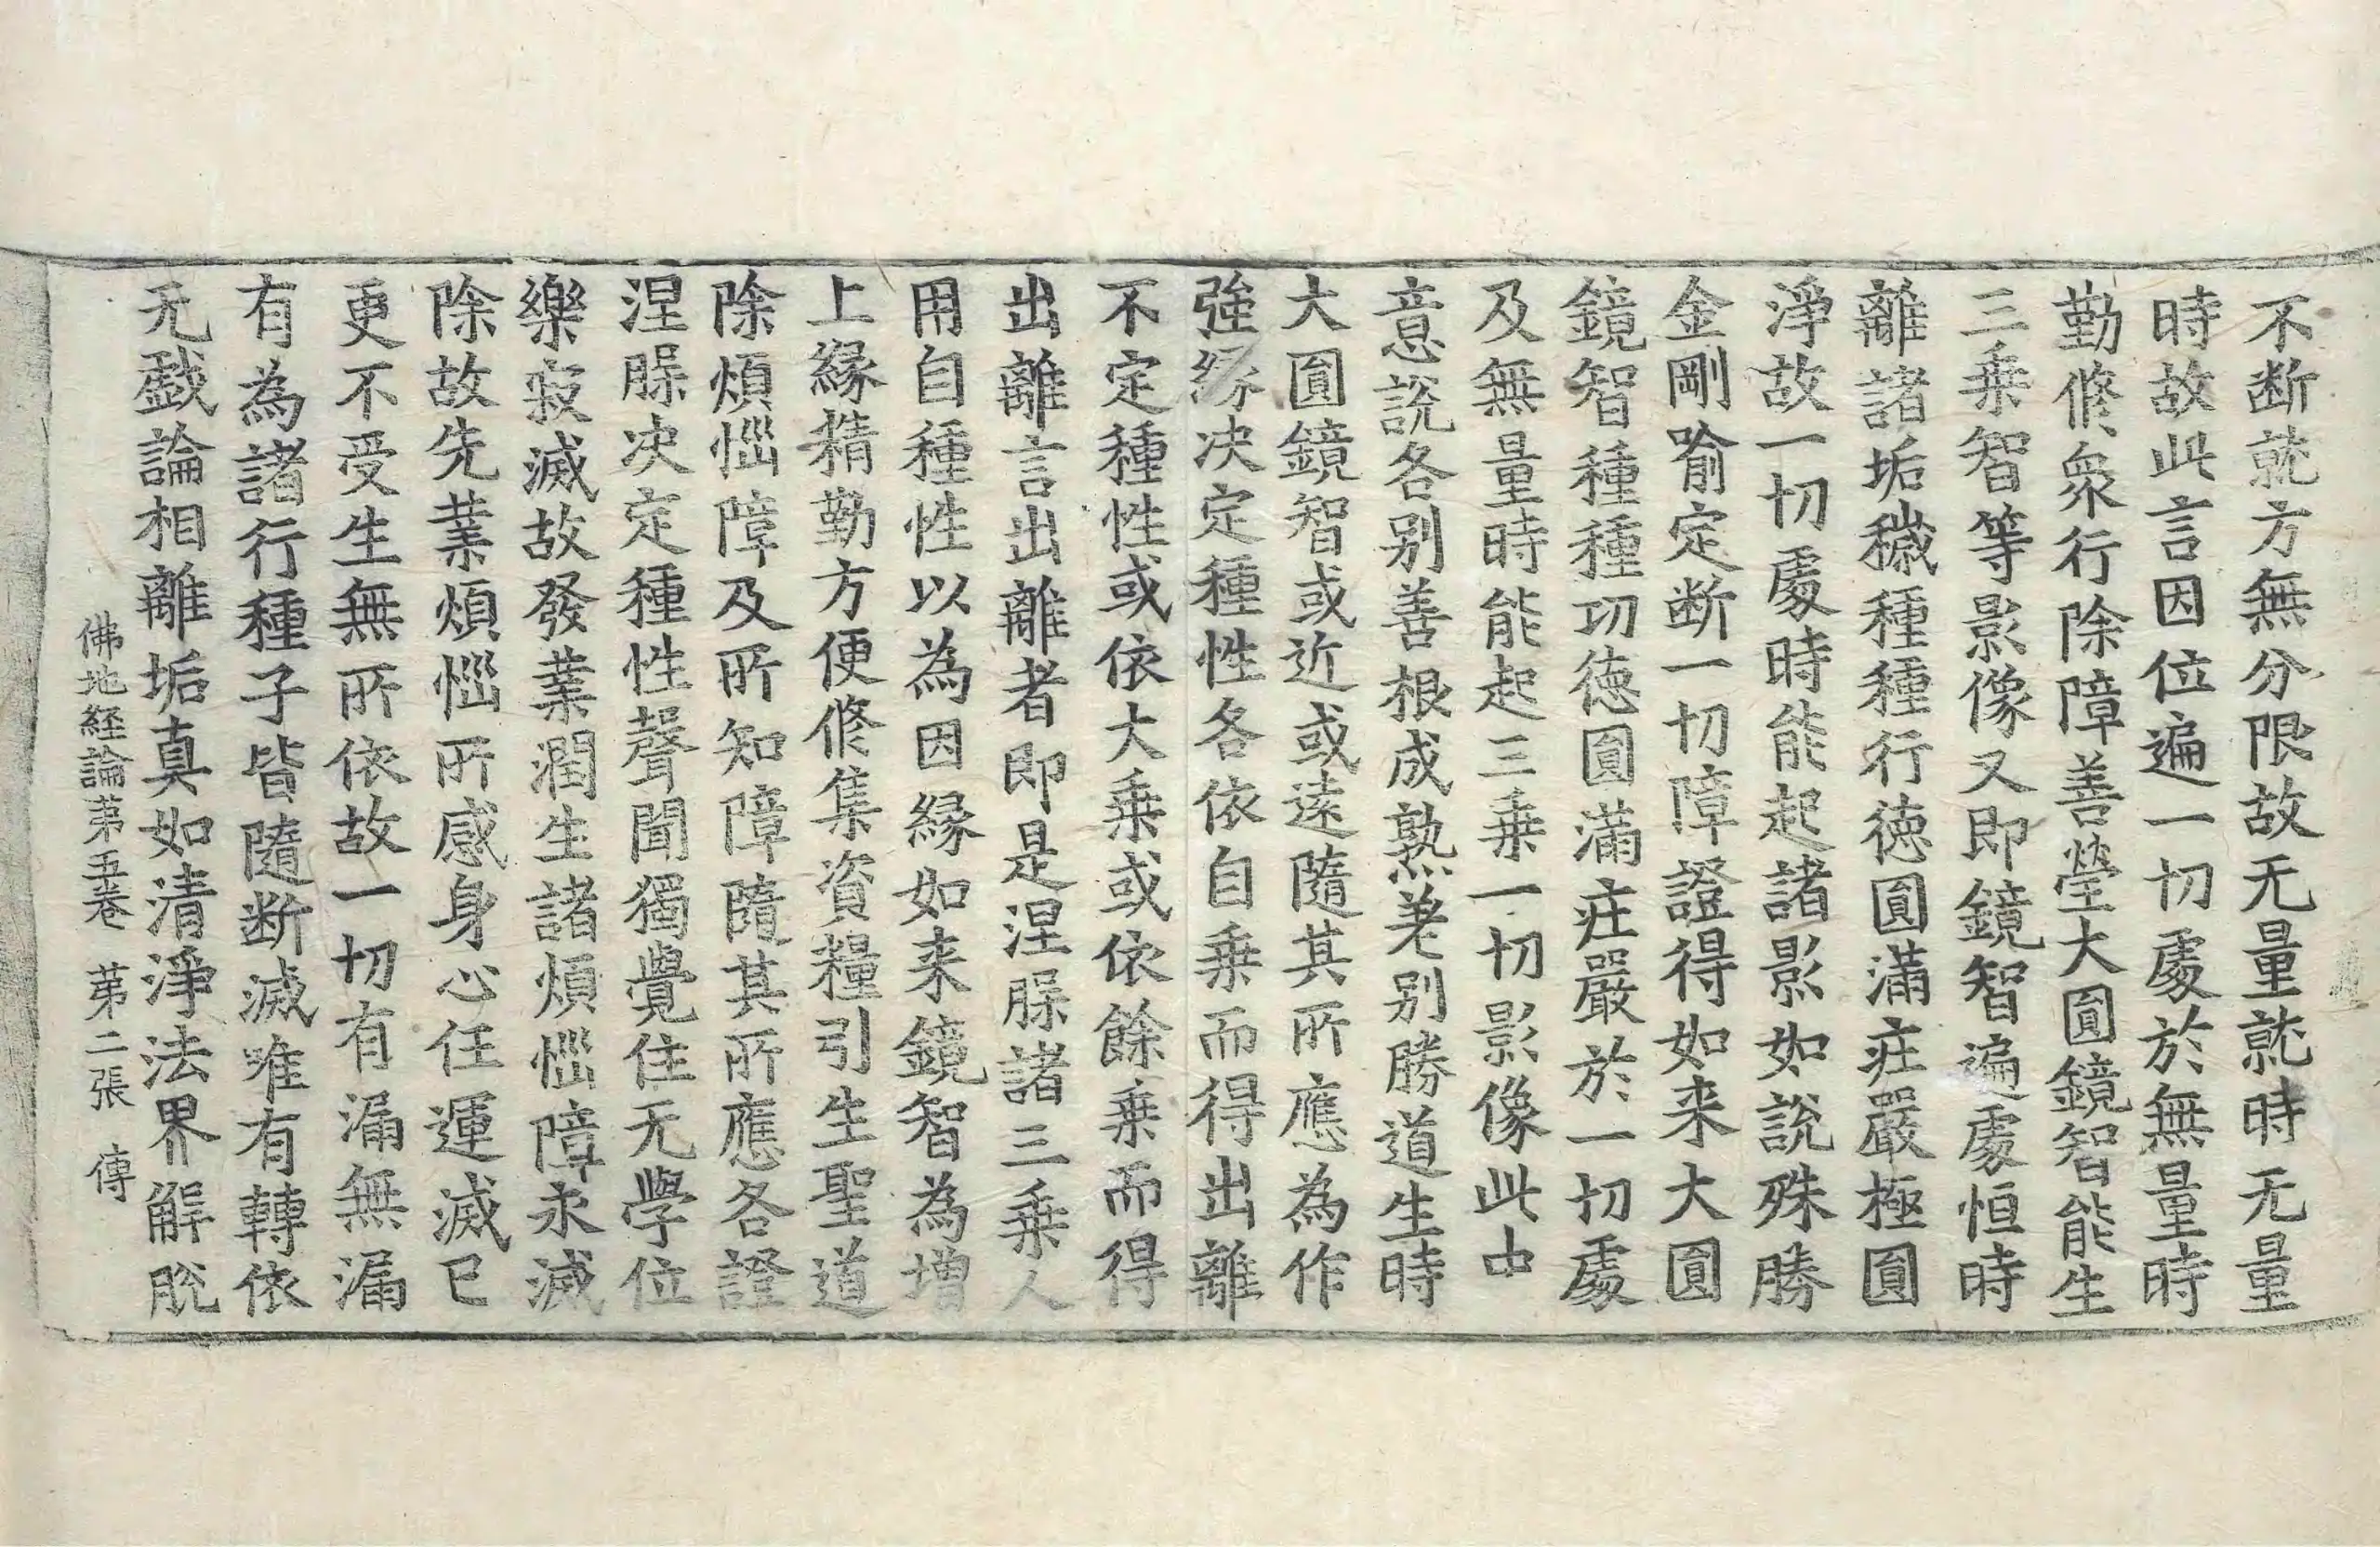 不断就方無分限故无量就時无量
時故此言因位遍一切處於無量時
勤修衆行除障善瑩大圓鏡智能生
三乗智等影像又即鏡智遍處恒時
離諸垢穢種種行徳圓滿㽵嚴極圓
淨故一切處時能起諸影如說殊勝
金剛喻定断一切障證得如来大圓
鏡智種種功徳圓滿㽵嚴於一切處
及無量時能起三乗一切影像此中
意說各别善根成熟差别勝道生時
大圓鏡智或近或遠隨其所應為作
強緣决定種性各依自乗而得出離
不定種性或依大乗或依餘乗而得
出離言出離者即是涅槃諸三乗人
用自種性以為因緣如来鏡智為增
上緣精勤方便修集資糧引生聖道
除煩惱障及所知障隨其所應各證
涅槃决定種性聲聞獨覺住无學位
樂寂滅故發業潤生諸煩惱障永滅
除故先業煩惱所感身心任運滅已
更不受生無所依故一切有漏無漏
有為諸行種子皆隨断滅唯有轉依
无戯論相離垢真如清淨法界解脫
佛地経論苐五卷 苐二張 傳